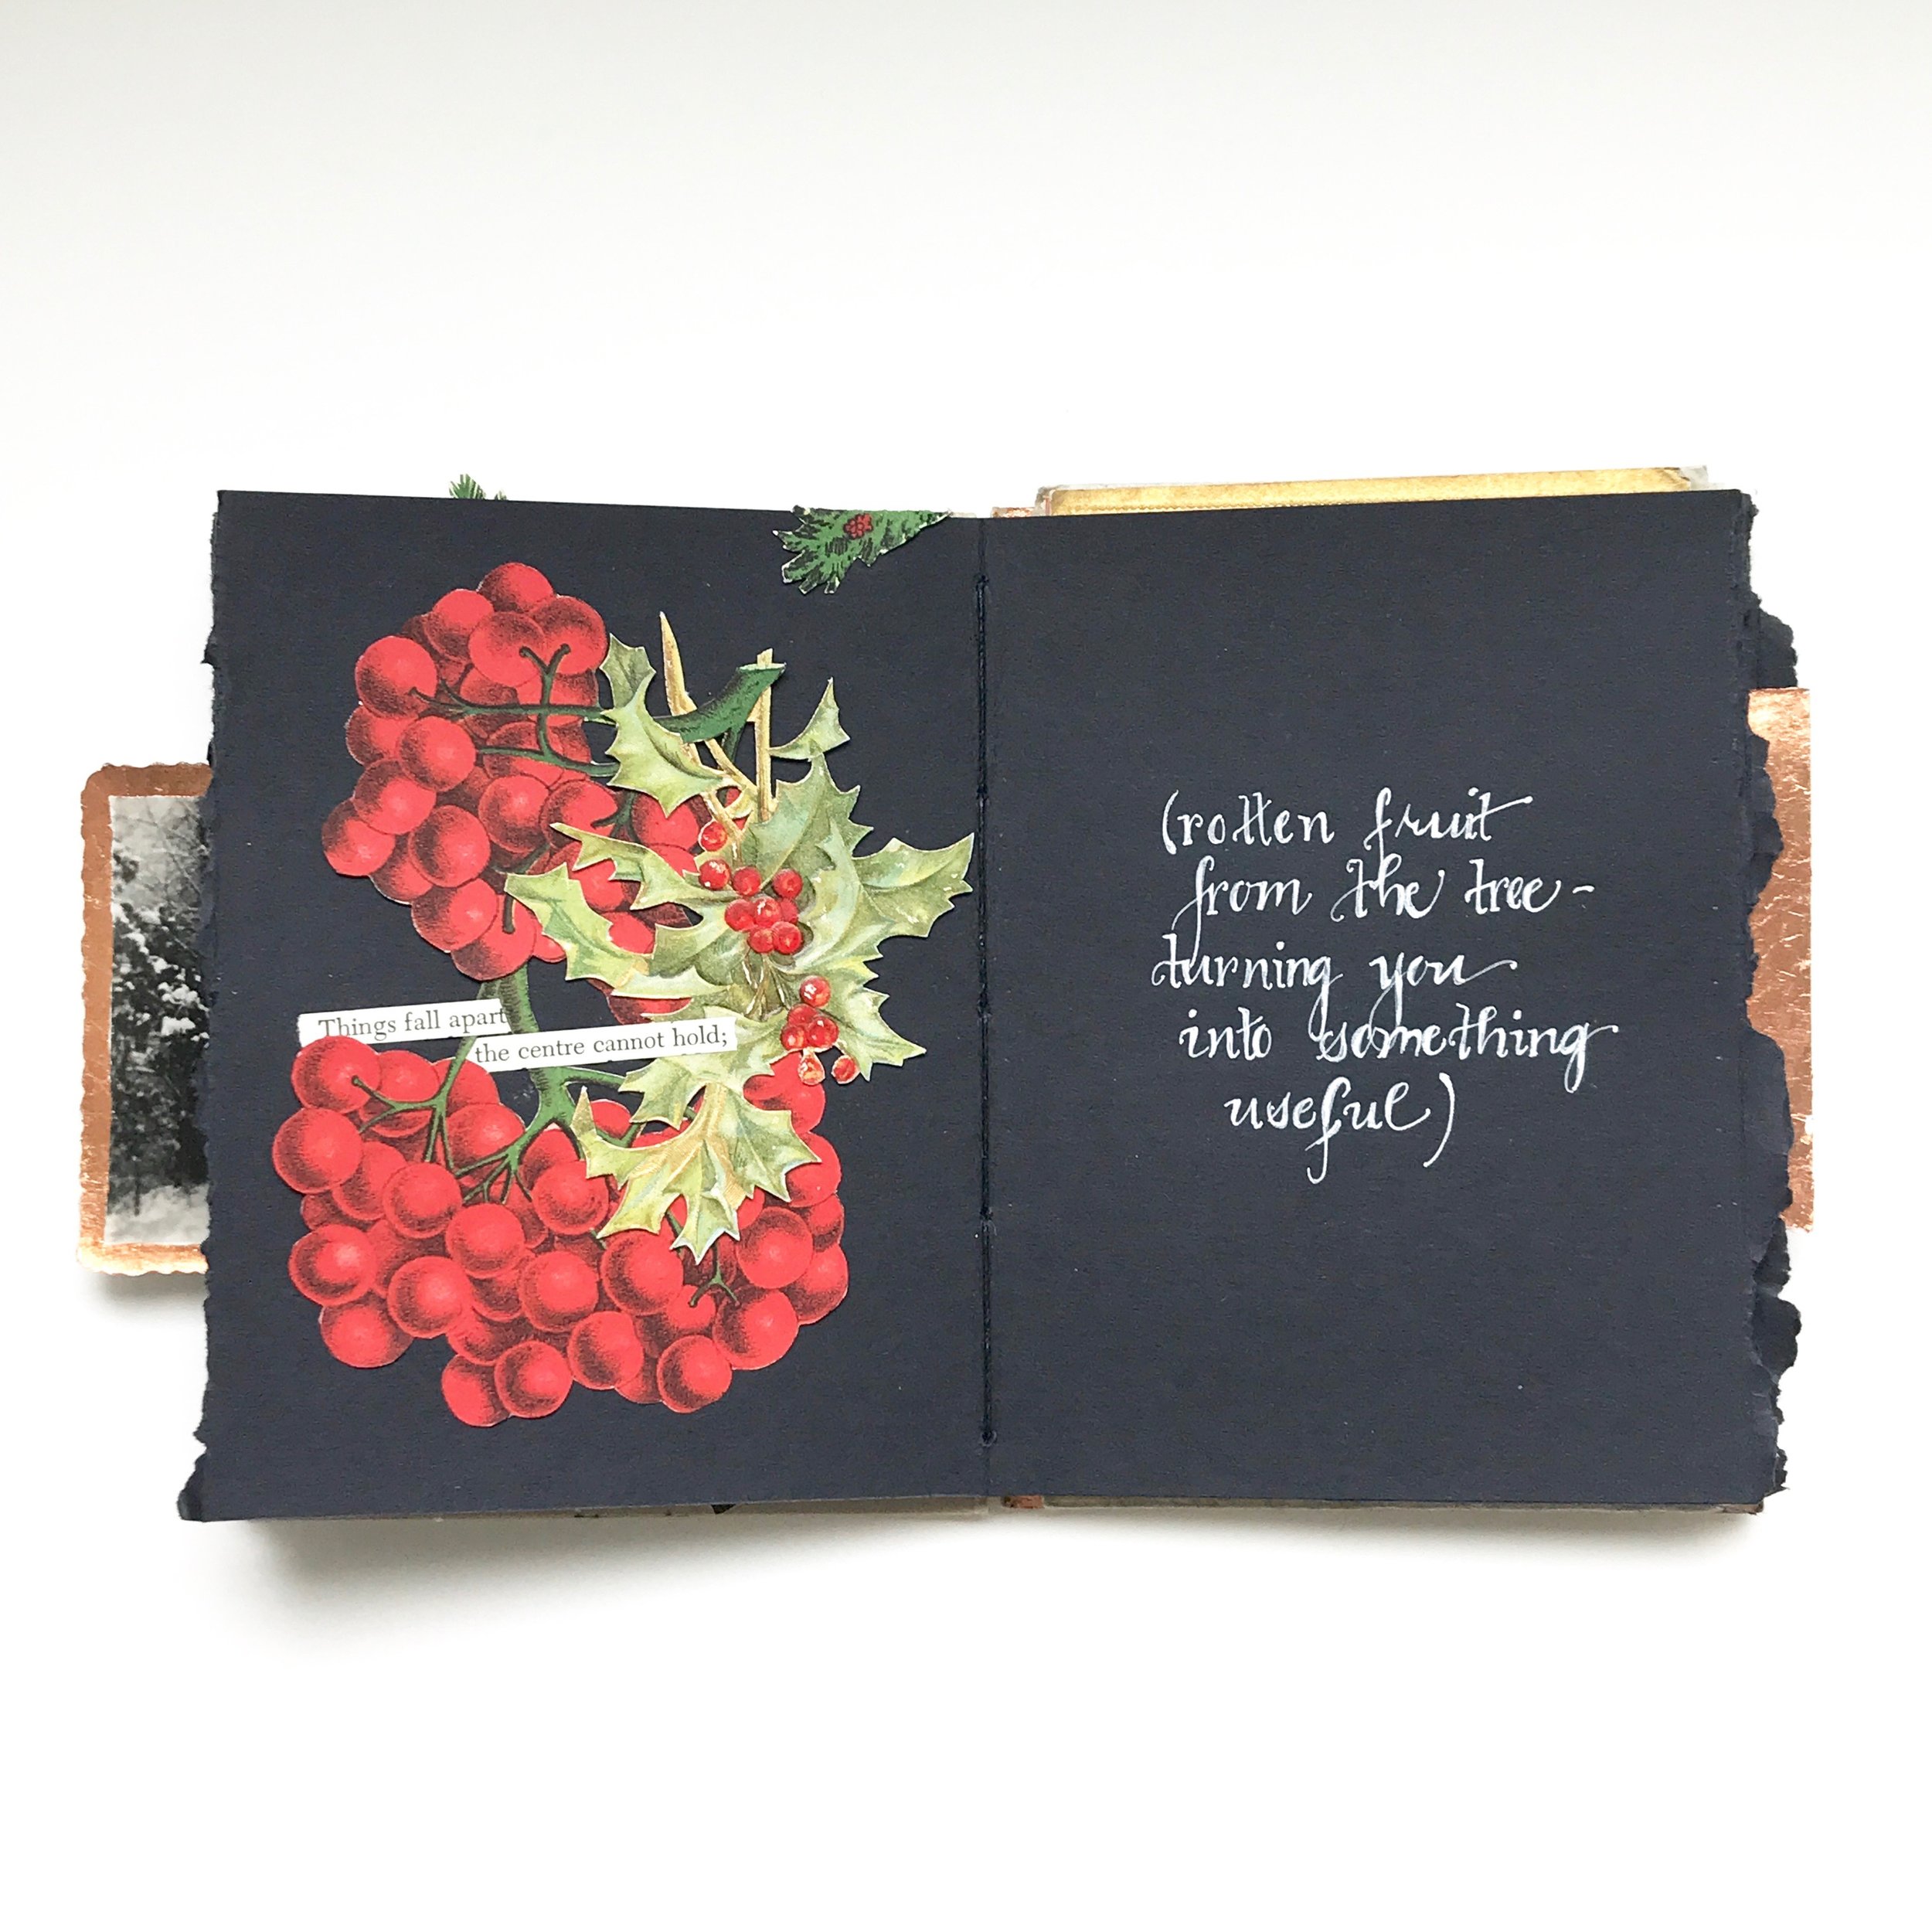 Things fall apart
the centre cannot hold;
(rotten fruit
from the tree-
turning you
into something
useful)